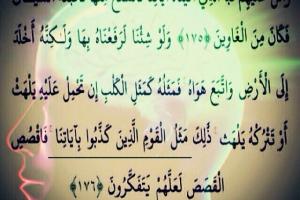 فَكَانَ مِنَ الْغَاوِينَ ﴿١٧٥﴾ وَلَوْ شِئْنَا لَرَفَعْنَاهُ بِهَا وَلَـٰكِنَّهُ أَخْلَدَ
إِلَى الْأَرْضِ وَاتَّبَعَ هَوَاهُ ۚ فَمَثَلُهُ كَمَثَلِ الْكَلْبِ إِن تَحْمِلْ عَلَيْهِ يَلْهَثْ
أَوْ تَتْرُكْهُ يَلْهَث ۚ ذَّٰلِكَ مَثَلُ الْقَوْمِ الَّذِينَ كَذَّبُوا بِآيَاتِنَا ۚ فَاقْصُصِ
الْقَصَصَ لَعَلَّهُمْ يَتَفَكَّرُونَ ﴿١٧٦﴾